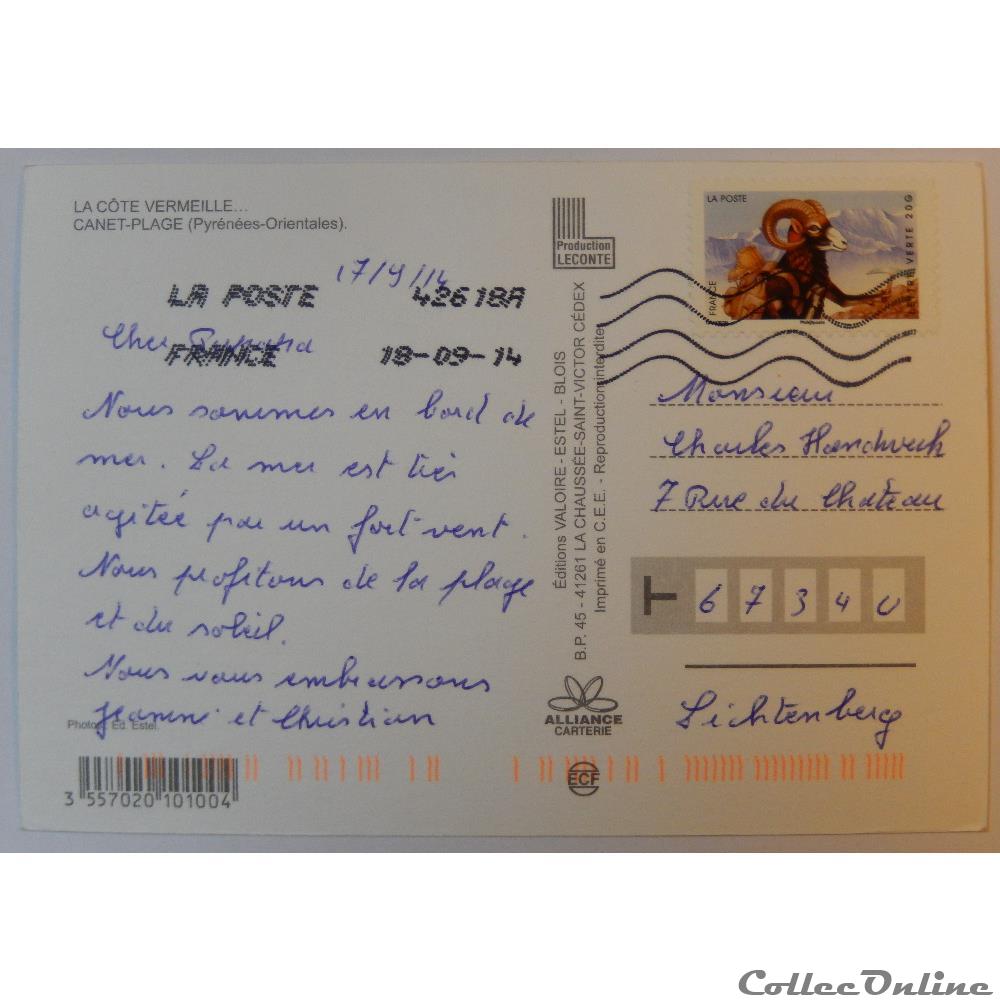 LA CÔTE VERMEILLE...
CANET-PLAGE (Pyrénées-Orientales).
17/9/14
LA POSTE 42618A
FRANCE 18-09-14
Cher
Nous sommes en bord de
mer. La mer est très
agitée par un fort vent.
Nous profitons de la plage
et du soleil.
Nous vous embrassons
Jeannine et Christian
Photos. Ed. Estel.
3 557020 101004
Production
LECONTE
Éditions VALOIRE - ESTEL - BLOIS
B.P. 45 - 41261 LA CHAUSSÉE-SAINT-VICTOR CÉDEX
Imprimé en C.E.E. - Reproduction interdite
ALLIANCE
CARTERIE
ECF
LA POSTE
FRANCE
LETTRE VERTE 20G
Monsieur
Charles
7 Rue du Chateau
67340
Lichtenberg
CollecOnline